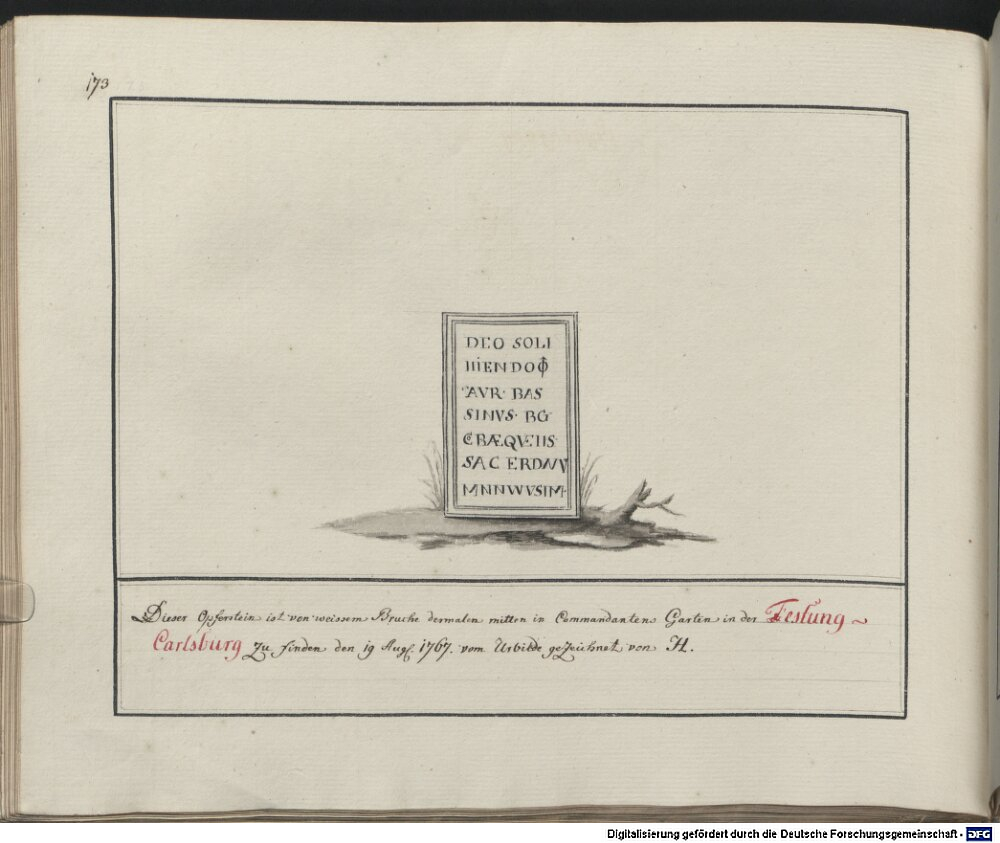 173
DEO SOLI
IIIENDOΦ
AVR· BAS
SINVS· BG
CBÆQVEIIS·
SAC ERDNV
MNNWVSIM·
Dieser Opferstein ist von weissem Bruche dermalen mitten in Commandantens Garten in der Festung ~
Carlsburg zu finden den 19 Aug. 1767. vom Urbilde gezeichnet von H.
Digitalisierung gefördert durch die Deutsche Forschungsgemeinschaft - DFG